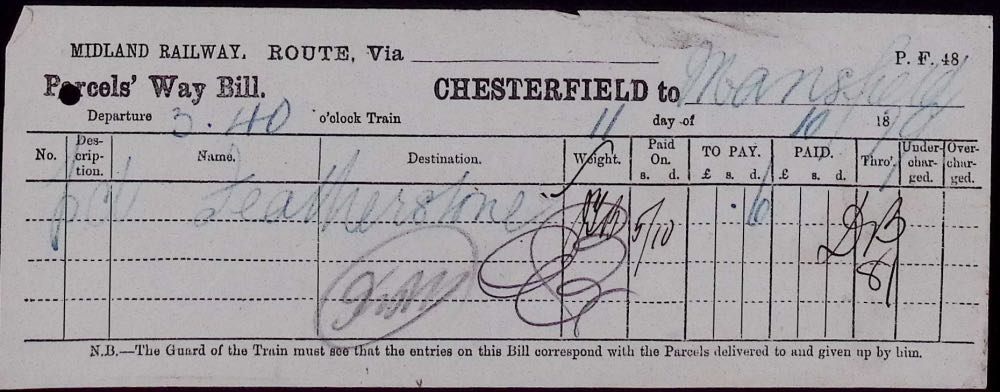 MIDLAND RAILWAY. ROUTE, Via
P. F. 48
Parcels' Way Bill. CHESTERFIELD to Mansfield
Departure 3.40 o'clock Train 11 day of 10 18
No. Description. Name. Destination. Weight. Paid On. s. d. TO PAY. £ s. d. PAID. £ s. d. Thro'. Under-charged. Over-charged.
Featherstone 5/10 .6 DB
81
N.B.—The Guard of the Train must see that the entries on this Bill correspond with the Parcels delivered to and given up by him.